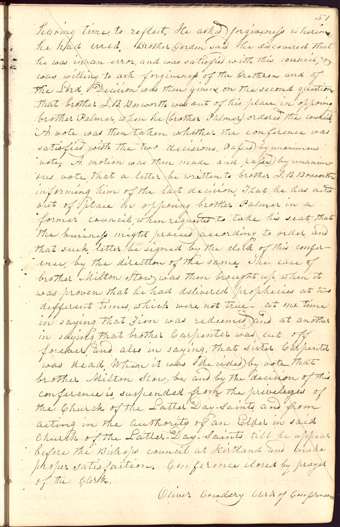 51
having time to reflect, He asked forgiveness wherein
he had erred, Brother Gordon said he discovered that
he was in an error, and was satisfied with this council,
was willing to ask forgiveness of the brethren and of
the Lord, Decision was then given on the second question
that brother J. B. Bosworth was out of his place in opposing
brother Palmer when he (brother Palmer) ordered the
A vote was then taken whether the conference was
satisfied with the two decisions. Passed by unanimous
vote, A motion was then made and passed by unanim-
ous vote that a letter be written to brother J. B. Bosworth
informing him of the last decision, That he has acted
out of place in opposing brother Palmer in a
former council when requested to take his seat, that
the business might proceed according to order, and
that such letter be signed by the clerk of this confer-
ence, by the direction of the same. The case of
brother Milton Stow, was then brought up, when it
was proven that he had delivered prophecies at two
different times which were not true— at one time
in saying that Zion was redeemed, and at another
in saying that brother Carpenter was cut off
forever, and also in saying, that sister Carpenter
was dead, When it was decided by vote that
brother Milton Stow, by and by the decision of this
conference is suspended from the privileges of
the Church of the Latter Day Saints and from
acting in the Authority of an Elder in said
Church of the Latter-Day-Saints till he appear
before the Bishops council at Kirtland and make
proper satisfaction. Conference closed by prayer
of the Clerk.
Oliver Cowdery Clerk of Conference